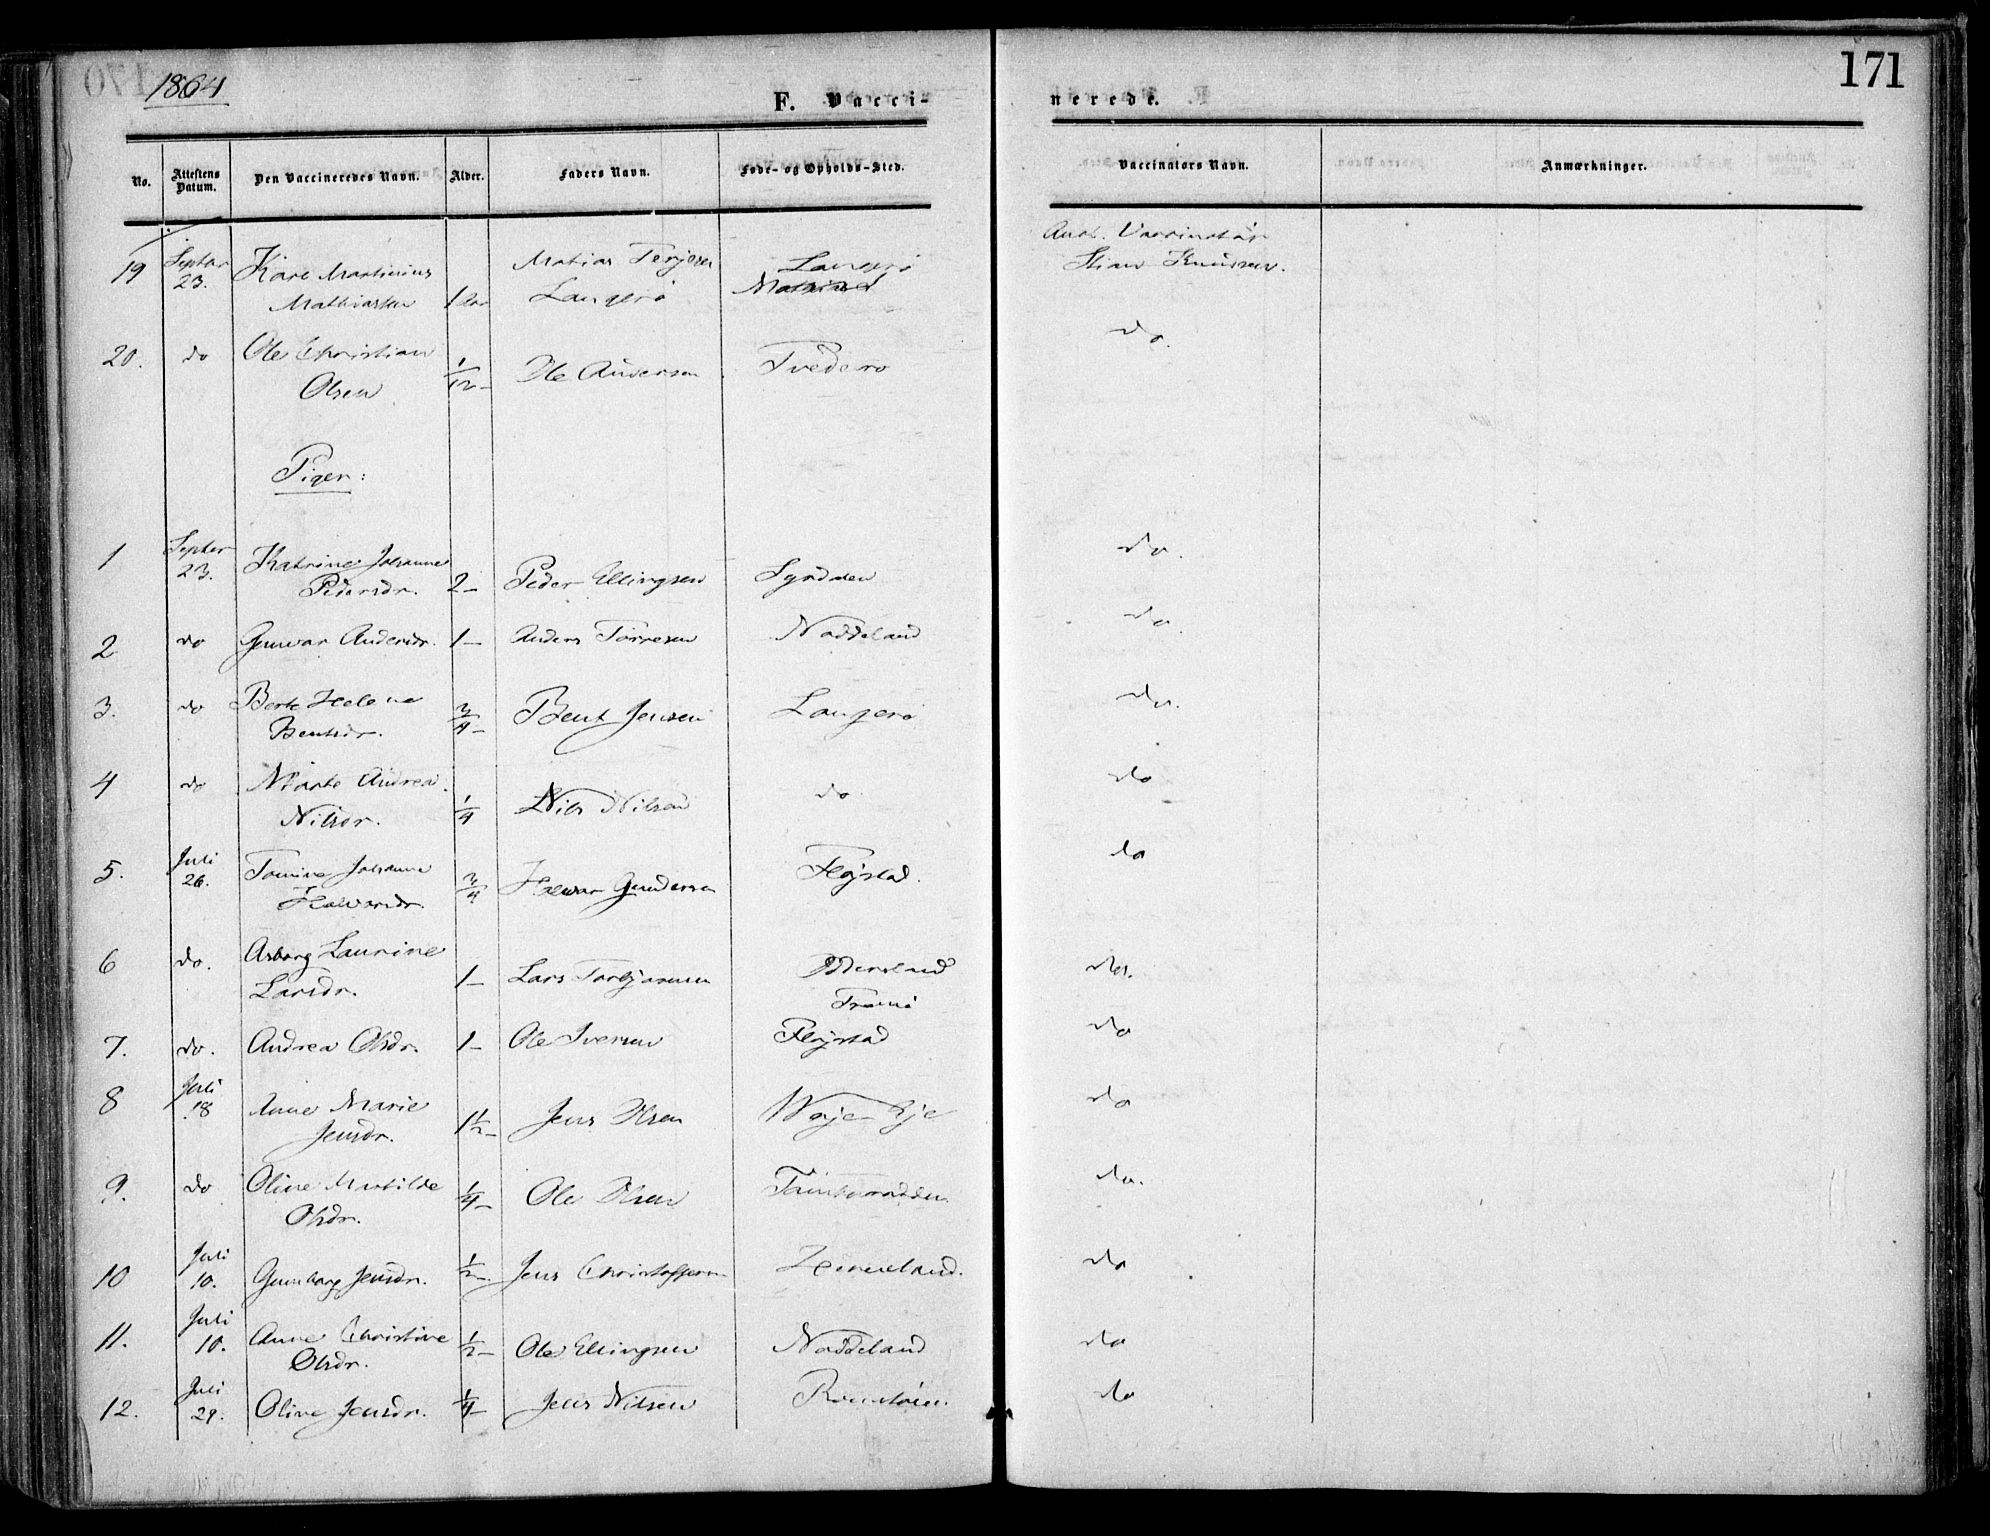 1864
171
F. Vacci-
nerede.
No.
Attestens Datum.
Den Vaccineredes Navn.
Alder.
Faders Navn.
Føde- og Opholds-Sted.
Vaccinators Navn.
Anmærkninger.
19 Septbr 23. Karl Martinius Mathiassen 1 Matias Terjesen Langerø Langerø Vaccinatør Knudsen.
20. do Ole Christian Olsen 1/12 – Ole Andersen Tvederø do.
Piger:
1 Septbr 23. Katrine Johanne Pedersdr. 2 – Peder Ellingsen do.
2 do Gunvor Andersdr. 1 – Anders Torresen Naddeland do.
3. do Berte Helene Bentsdr. 3/4 – Bent Jensen Langerø do.
4 do Marte Andrea Nilsdr. 1/4 Nils Nilsen do do
5. Juli 26. Tomine Johanne Halvorsdr. 3/4 Halvor Gundersen Fløjstad. do
6 do. Asborg Laurine Larsdr. 1 – Lars Torbjørnsen Tromø do.
7. do. Andrea Olsdr. 1 – Ole Iversen Fløjstad do
8 Juli 18 Anne Marie Jensdr. 1 1/2 – Jens Olsen Woje Eje do
9. do Oline Matilde Olsdr. 1/4 – Ole Olsen do.
10 Juli 10. Gunborg Jensdr. 1/2 – Jens Christoffersen do
11. Juli 10. Anne Christine Olsdr. 1/2 – Ole Ellingsen Naddeland do
12. Juli 29. Oline Jensdr. 1/4 – Jens Nilsen do